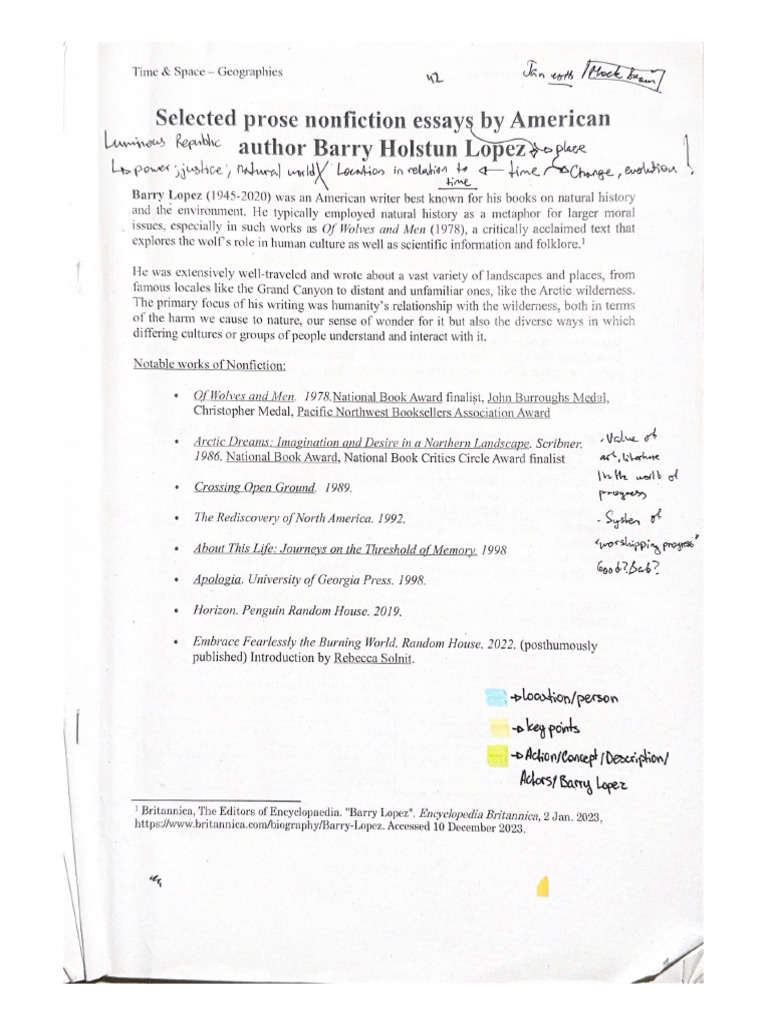 Time & Space – Geographies
42
Jan 10th / Mock Exam
Selected prose nonfiction essays by American
Luminous Republic
author Barry Holstun Lopez
→ place
↳ power; justice; natural world
Location in relation to time
← time → Change, evolution !
Barry Lopez (1945-2020) was an American writer best known for his books on natural history
and the environment. He typically employed natural history as a metaphor for larger moral
issues, especially in such works as Of Wolves and Men (1978), a critically acclaimed text that
explores the wolf's role in human culture as well as scientific information and folklore.¹
He was extensively well-traveled and wrote about a vast variety of landscapes and places, from
famous locales like the Grand Canyon to distant and unfamiliar ones, like the Arctic wilderness.
The primary focus of his writing was humanity's relationship with the wilderness, both in terms
of the harm we cause to nature, our sense of wonder for it but also the diverse ways in which
differing cultures or groups of people understand and interact with it.
Notable works of Nonfiction:
• Of Wolves and Men. 1978.National Book Award finalist, John Burroughs Medal,
Christopher Medal, Pacific Northwest Booksellers Association Award
• Arctic Dreams: Imagination and Desire in a Northern Landscape. Scribner.
1986. National Book Award, National Book Critics Circle Award finalist
• Crossing Open Ground. 1989.
• The Rediscovery of North America. 1992.
• About This Life: Journeys on the Threshold of Memory. 1998
• Apologia. University of Georgia Press. 1998.
• Horizon. Penguin Random House. 2019.
• Embrace Fearlessly the Burning World. Random House. 2022. (posthumously
published) Introduction by Rebecca Solnit.
- Value of
art, literature
in the world of
progress
- System of
"worshipping progress"
Good? Bad?
→ Location/person
→ key points
→ Action/Concept/Description/
Actors/Barry Lopez
¹ Britannica, The Editors of Encyclopaedia. "Barry Lopez". Encyclopedia Britannica, 2 Jan. 2023,
https://www.britannica.com/biography/Barry-Lopez. Accessed 10 December 2023.